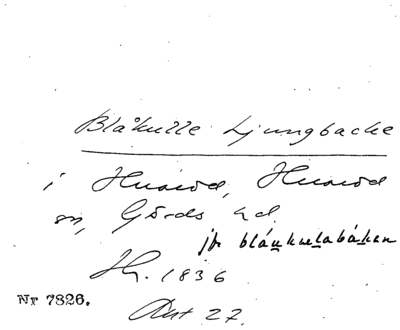 Blåkulle Ljungbacke
i Huaröd, Huaröd
sn, Gärds hd.
jfr blåukulabákan
Jh. 1836
Nr 7826.
Ant 27.